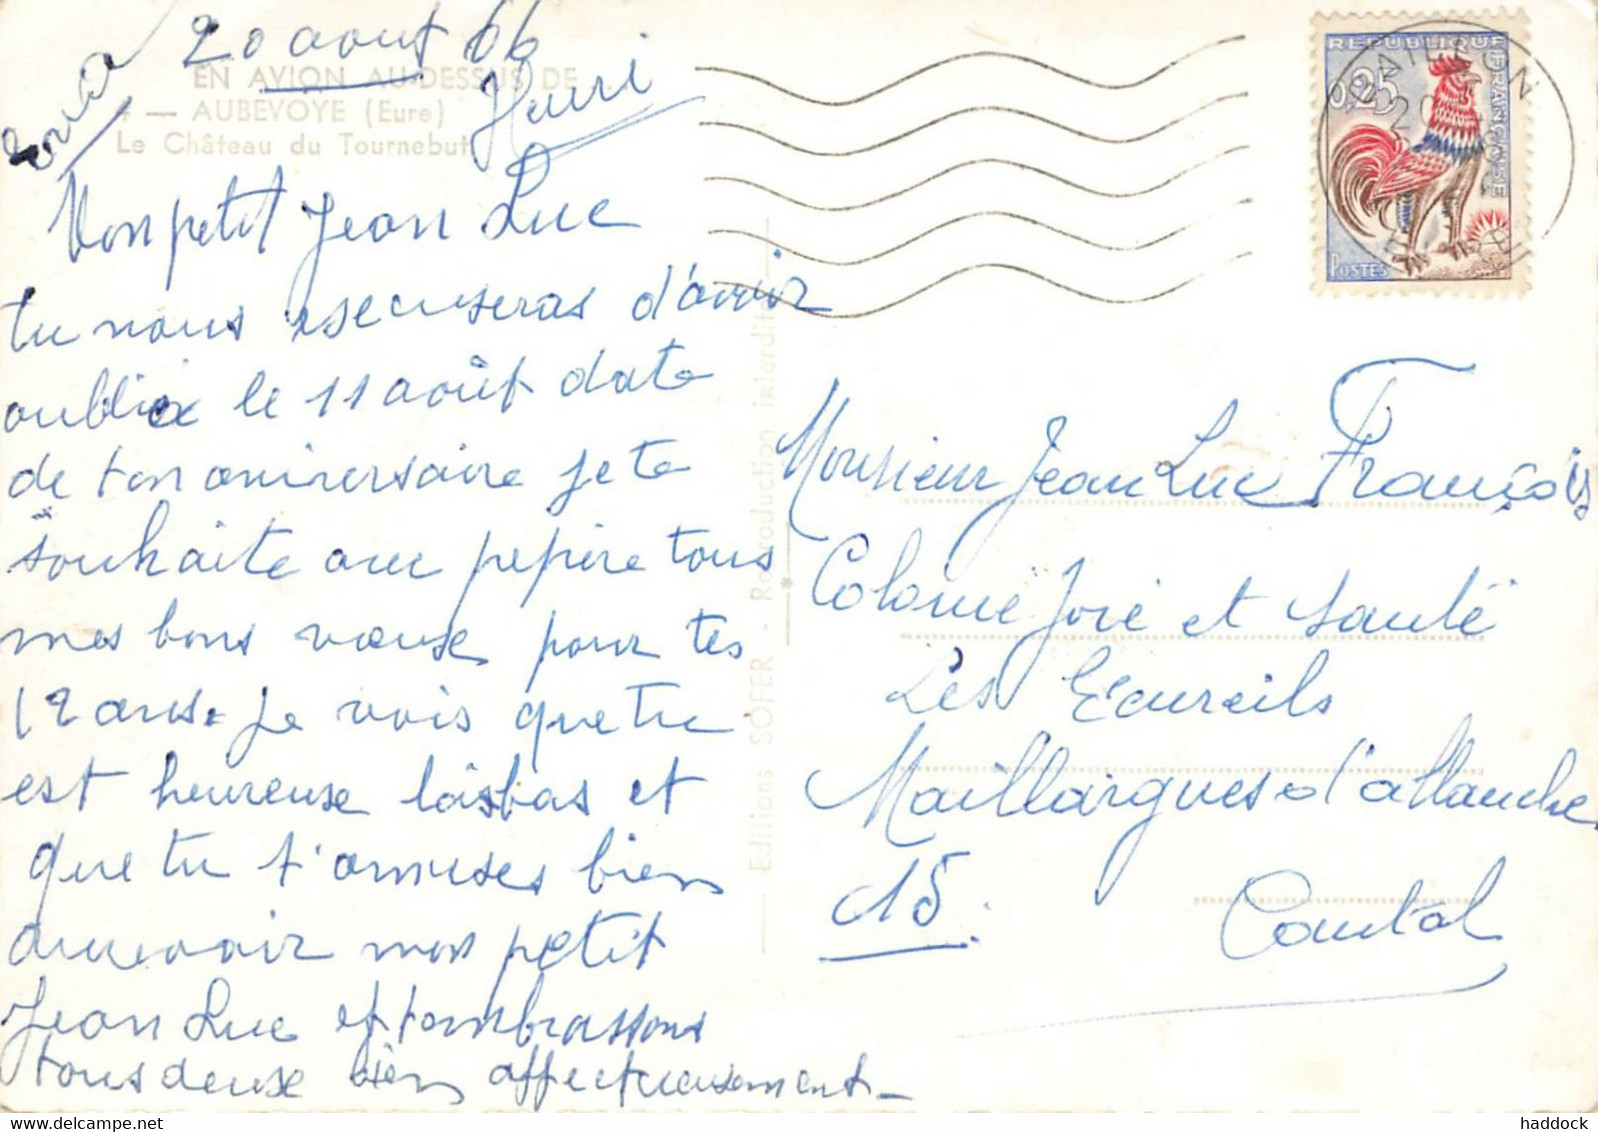 20 aout 66
EN AVION AU-DESSUS DE
4 — AUBEVOYE (Eure)
Le Château du Tournebut
Henri
Mon petit Jean Luc
tu nous escuseras d'avoir
oublier le 11 août date
de ton aniversaire je te
souhaite avec pepère tous
mes bons vœuse pour tes
12 ans. Je vois que tu
est heureuse labas et
que tu t'amuses bien
aurevoir mon petit
Jean Luc et t'ombrassons
tous deuse bien affectueusement
Editions SOFER - Reproduction interdite
REPUBLIQUE FRANÇAISE
0,25
POSTES
GAILLON
Monsieur Jean Luc François
Colonie Joie et Santé
Les Ecureils
Maillargues d'allanche
15.
Cantal
haddock